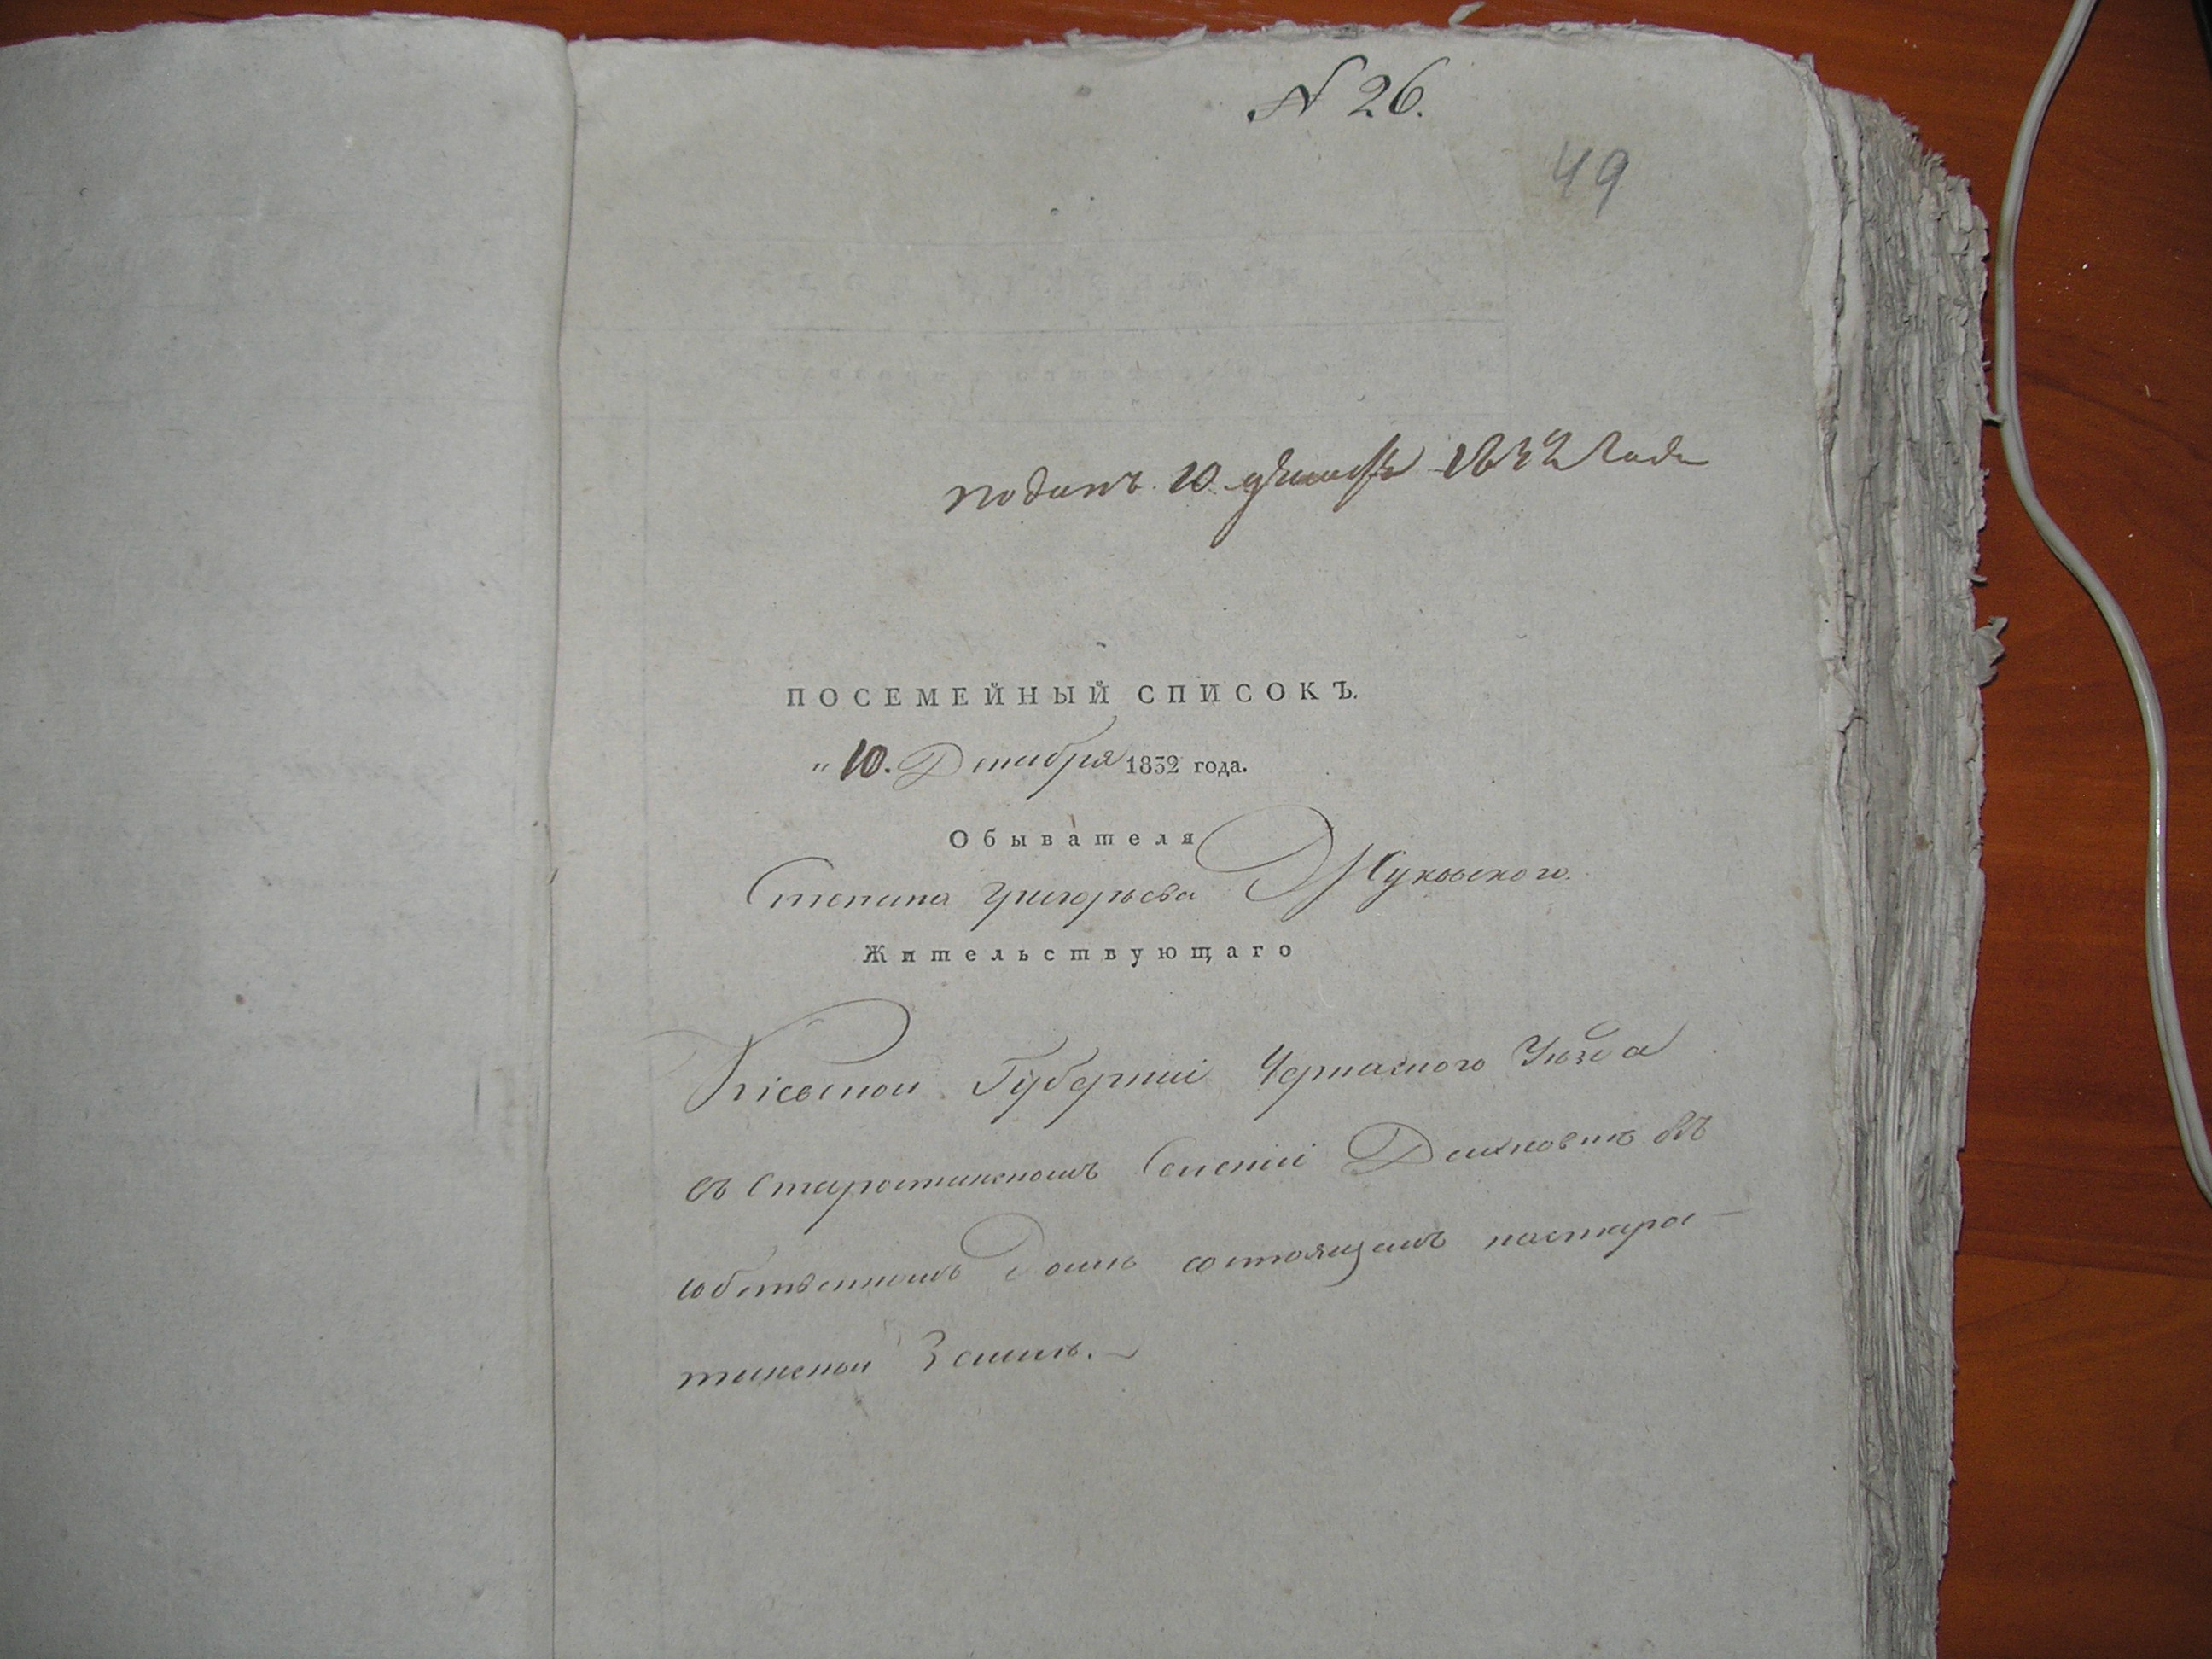 N 26.
49
поданъ 10 декабря 1832 года
ПОСЕМЕЙНЫЙ СПИСОКЪ.
„ 10. Декабря 1832 года.
Обывателя
Степана Григорьева Жуковского.
Жительствующаго
Кіевской Губерніи Черкаского Уѣзда
въ Старостинскомъ Селеніи въ
собственномъ Домѣ состоящемъ настаро-
тинской Землѣ.—